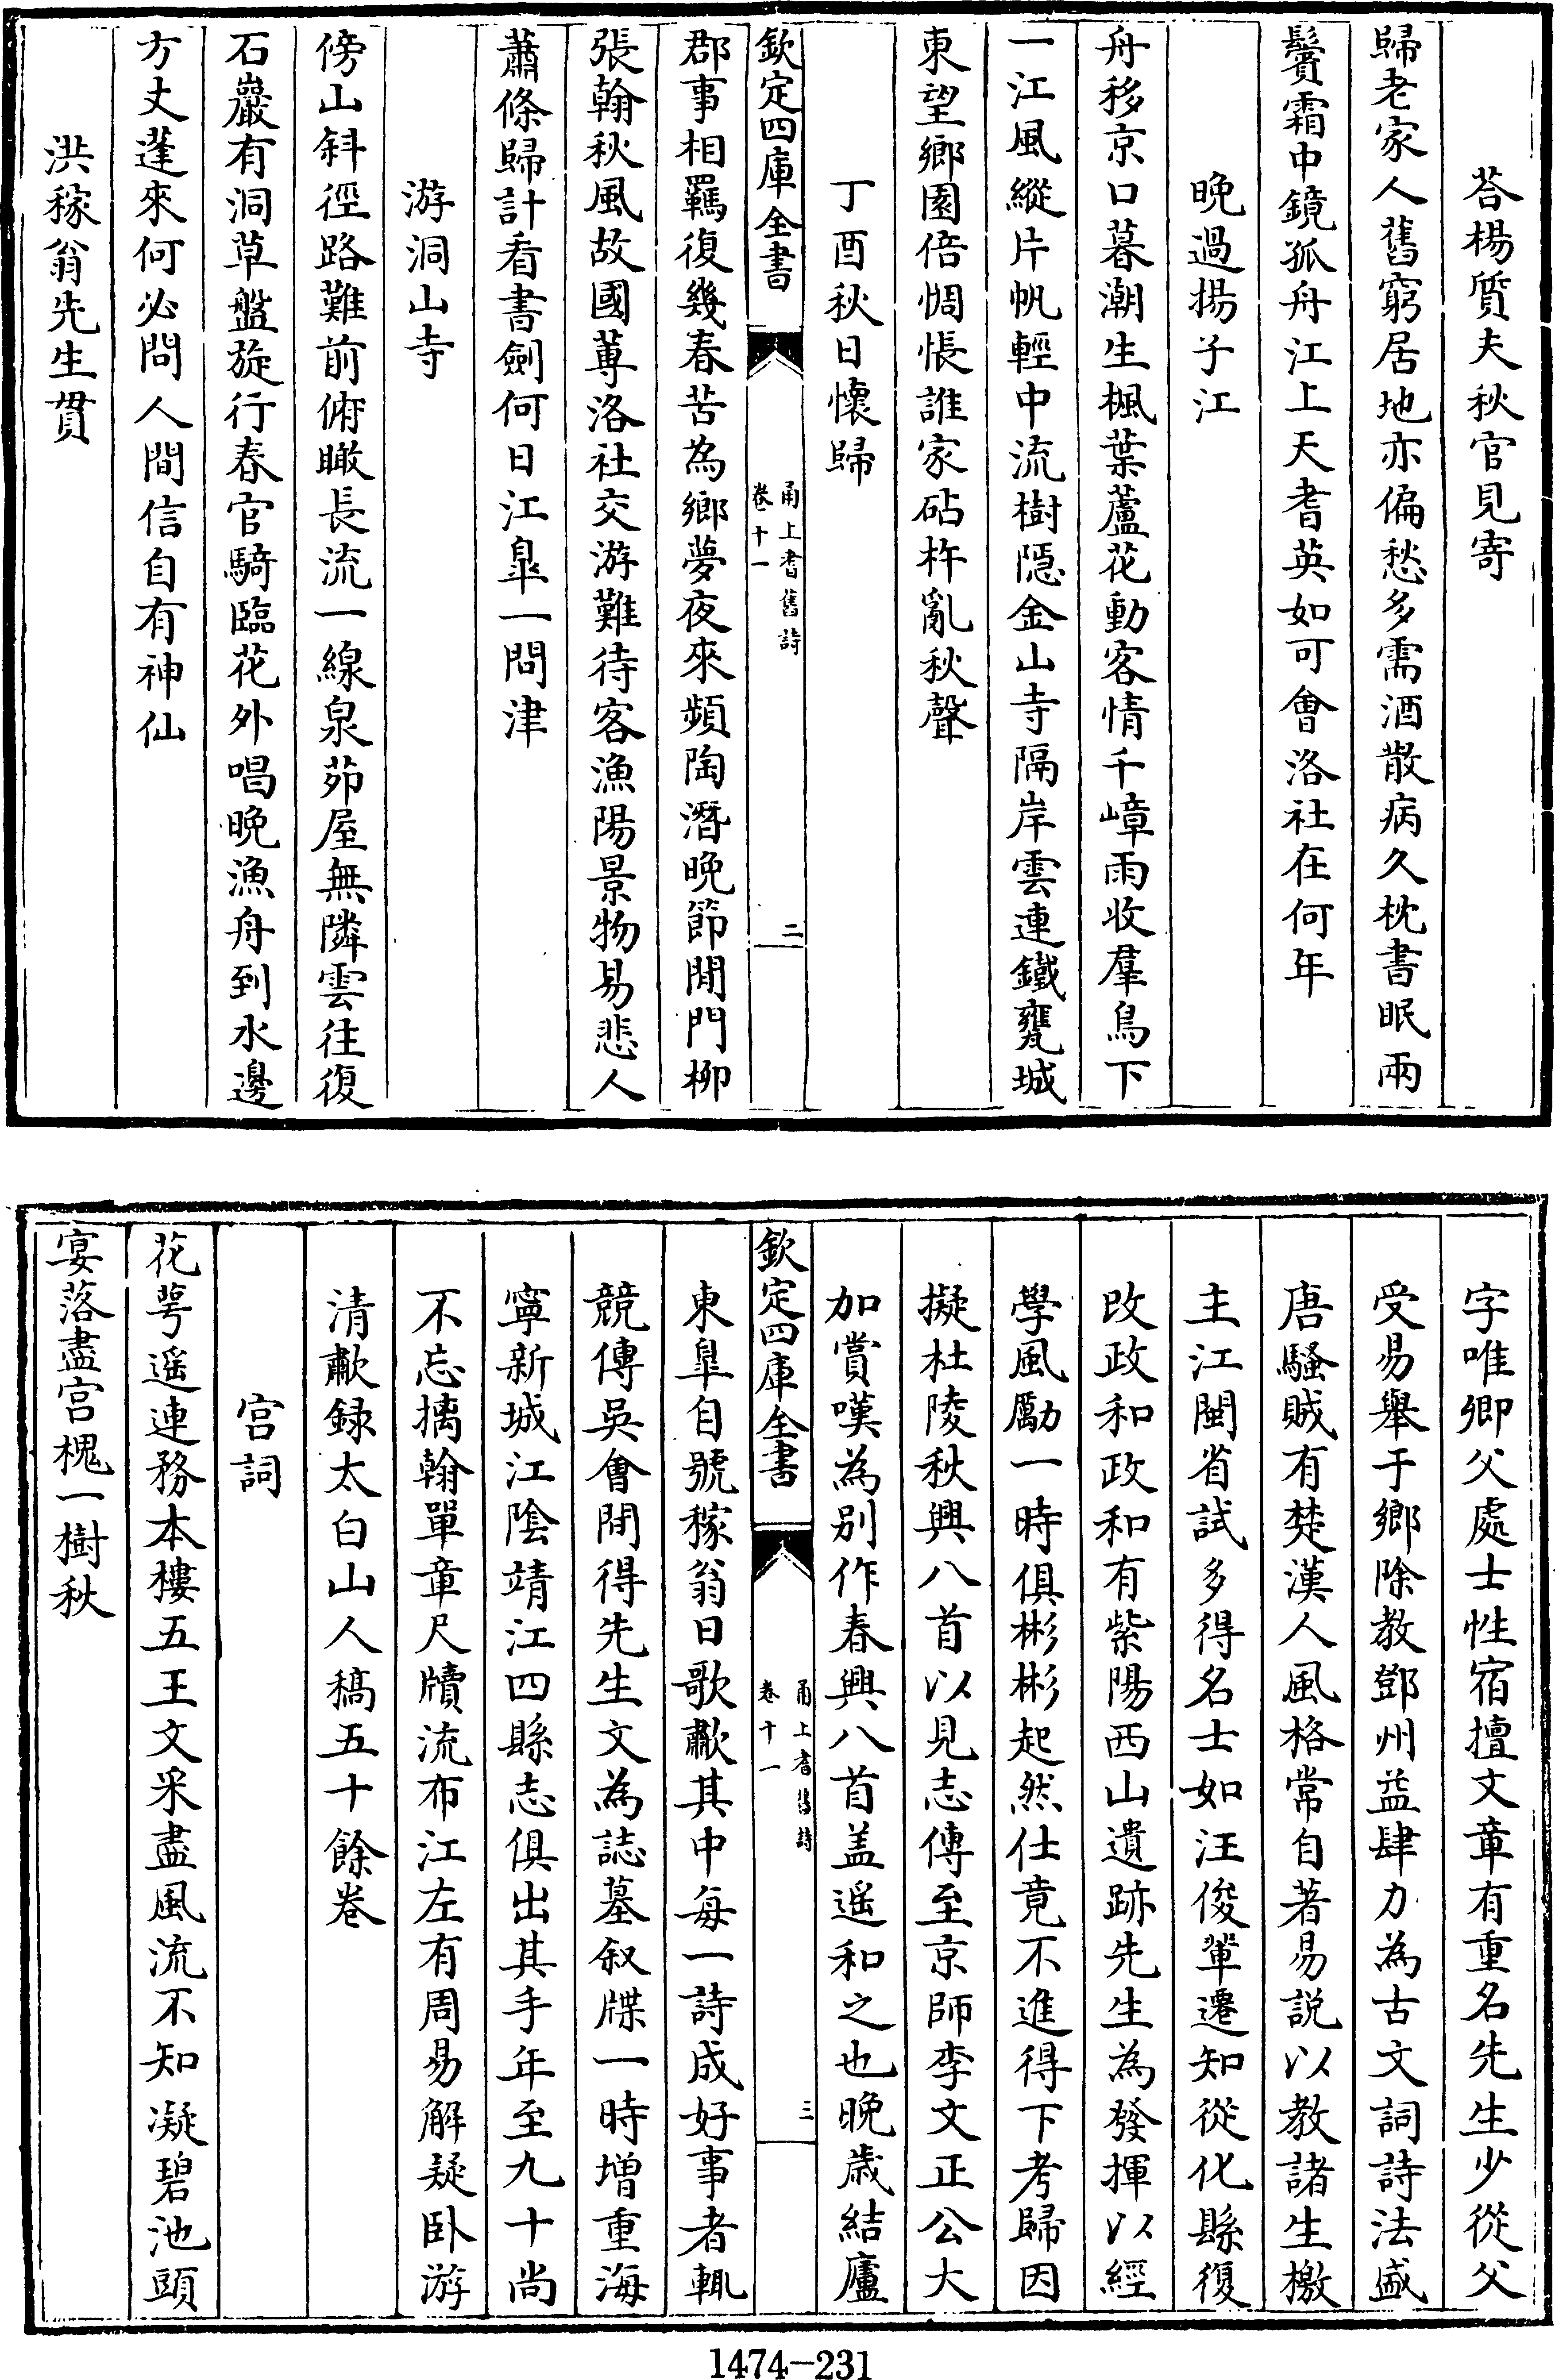 荅楊質夫秋官見寄
歸老家人舊窮居地亦偏愁多需酒散病久枕書眠兩
鬢霜中鏡孤舟江上天耆英如可會洛社在何年
晚過揚子江
舟移京口暮潮生楓葉蘆花動客情千嶂雨收羣鳥下
一江風縱片帆輕中流樹隱金山寺隔岸雲連鐵甕城
東望鄉園倍惆悵誰家砧杵亂秋聲
丁酉秋日懷歸
欽定四庫全書
甬上耆舊詩
卷十一
二
郡事相羈復幾春苦為鄉夢夜來頻陶潛晚節閒門柳
張翰秋風故國蓴洛社交游難待客漁陽景物易悲人
蕭條歸計看書劍何日江臯一問津
游洞山寺
傍山斜徑路難前俯瞰長流一線泉茆屋無隣雲往復
石巖有洞草盤旋行春官騎臨花外唱晚漁舟到水邊
方丈蓬來何必問人間信自有神仙
洪稼翁先生貫
字唯卿父處士性宿擅文章有重名先生少從父
受易舉于鄉除教鄧州益肆力為古文詞詩法盛
唐騷賊有楚漢人風格常自著易説以教諸生檄
主江閩省試多得名士如汪俊軰遷知從化縣復
改政和政和有紫陽西山遺跡先生為發揮以經
學風勵一時俱彬彬起然仕竟不進得下考歸因
擬杜陵秋興八首以見志傳至京師李文正公大
加賞嘆為别作春興八首盖遥和之也晩歲結廬
欽定四庫全書
甬上耆舊詩
卷十一
三
東臯自號稼翁日歌歗其中每一詩成好事者輒
競傳吳會間得先生文為誌墓叙牒一時增重海
寧新城江陰靖江四縣志俱出其手年至九十尚
不忘摛翰單章尺牘流布江左有周易解疑卧游
清歗録太白山人稿五十餘卷
宫詞
花萼遥連務本樓五王文采盡風流不知凝碧池頭
宴落盡宫槐一樹秋
1474-231